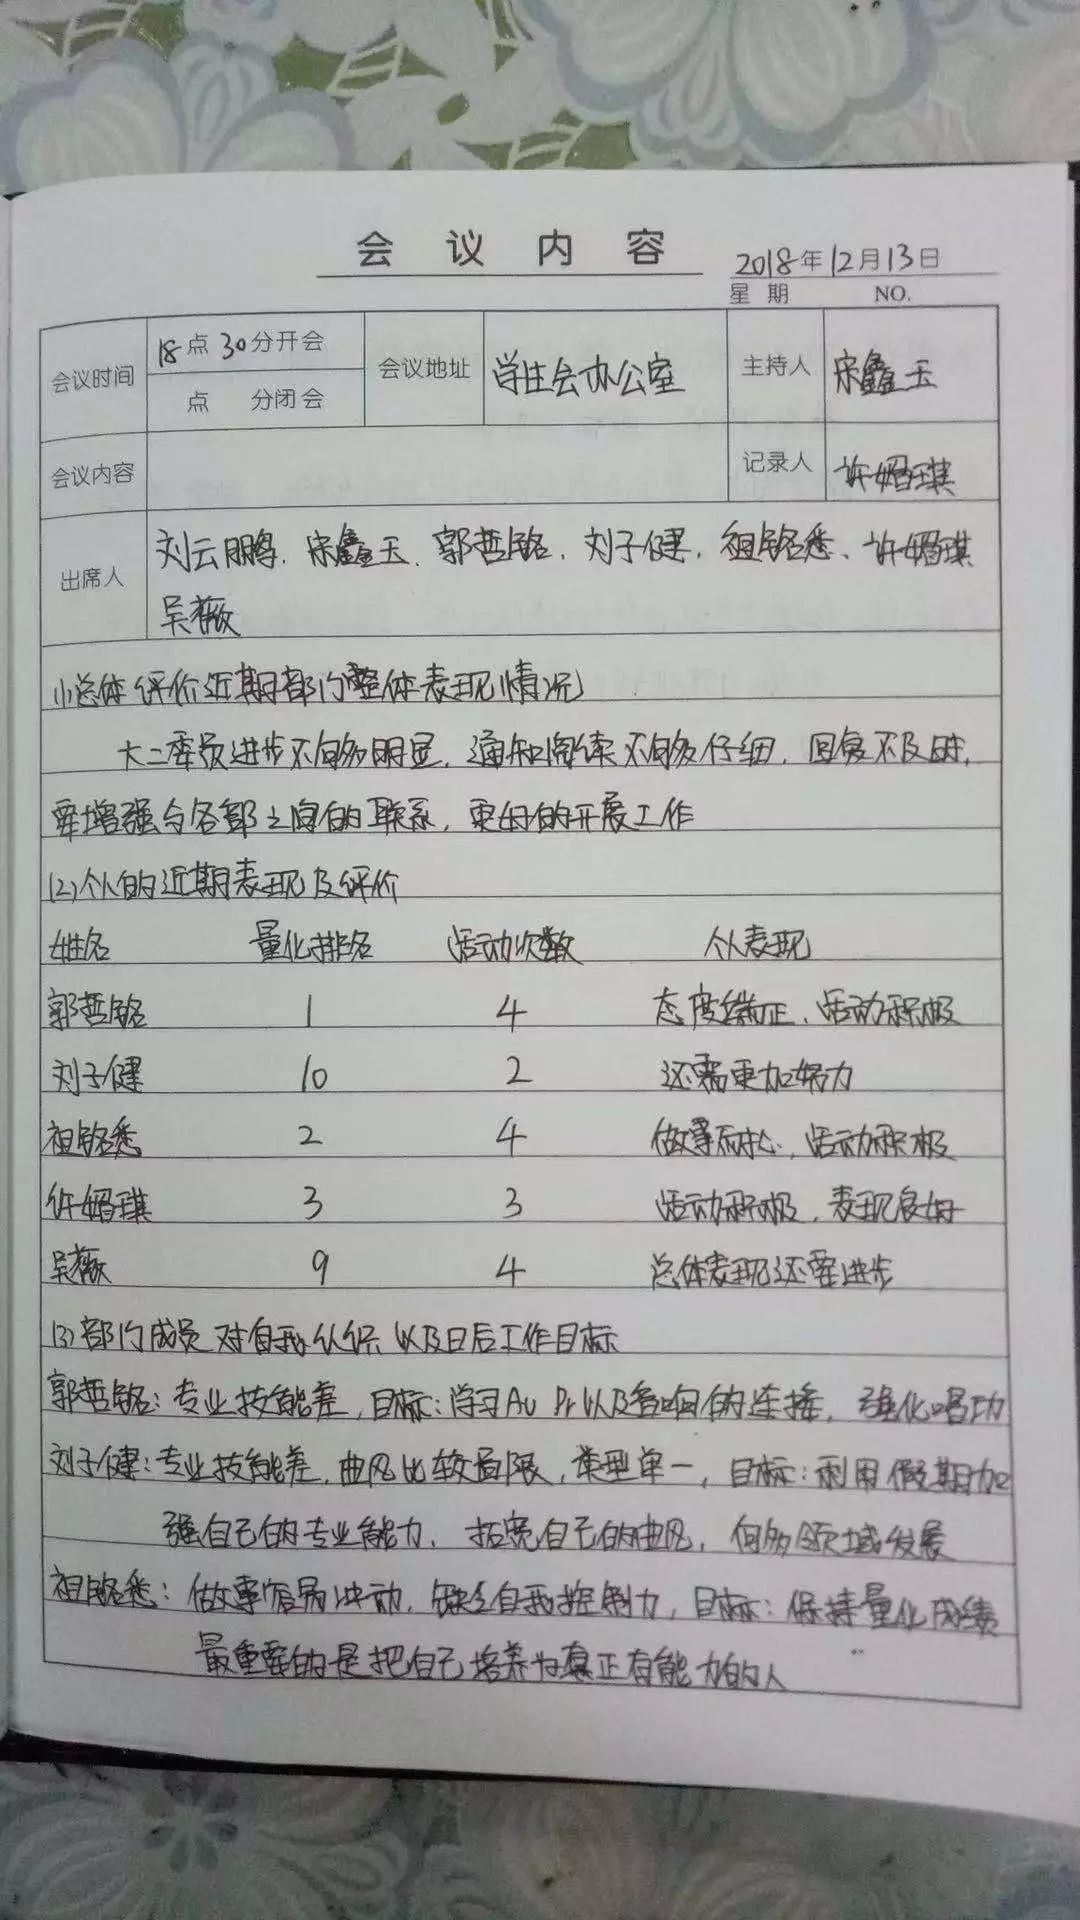 会议内容
2018年12月13日
星期 NO.
会议时间 18点30分开会 会议地址 学生会办公室 主持人 宋鑫玉
点 分闭会
会议内容 记录人 许嫍琪
出席人 刘云鹏、宋鑫玉、郭哲铭、刘子健、祖铭悉、许嫍琪
吴薇
(1)总体评价近期部门整体表现情况
大二委员进步不够明显，通知阅读不够仔细，回复不及时，
要增强与各部之间的联系，更好的开展工作
(2)个人的近期表现及评价
姓名 量化排名 活动次数 个人表现
郭哲铭 1 4 态度端正、活动积极
刘子健 10 2 还需更加努力
祖铭悉 2 4 做事耐心，活动积极
许嫍琪 3 3 活动积极，表现良好
吴薇 9 4 总体表现还需进步
(3)部门成员对自我认识以及日后工作目标
郭哲铭：专业技能差，目标：学习Au Pr以及音响的连接，强化唱功
刘子健：专业技能差，曲风比较局限，类型单一，目标：利用假期加
强自己的专业能力，拓宽自己的曲风，向多领域发展
祖铭悉：做事容易冲动，缺乏自我控制力，目标：保持量化成绩
最重要的是把自己培养为真正有能力的人